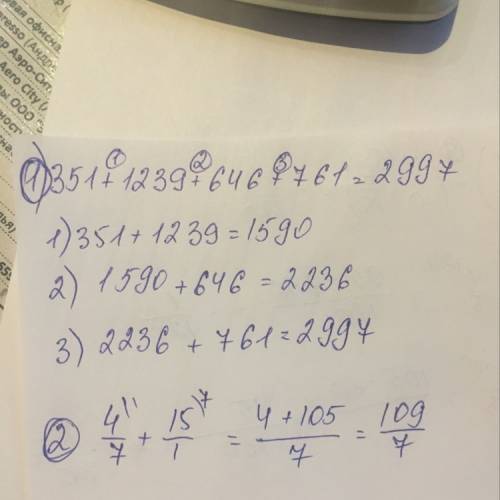 вая офисна
presso (Андре
ер Аэро-Сит
Aero City (
ы ООО
ность
1) 351 + 1239 + 646 + 761 = 2997
1 2 3
1) 351 + 1239 = 1590
2) 1590 + 646 = 2236
3) 2236 + 761 = 2997
2 4/7 \1 + 15/1 \7 = (4 + 105)/7 = 109/7